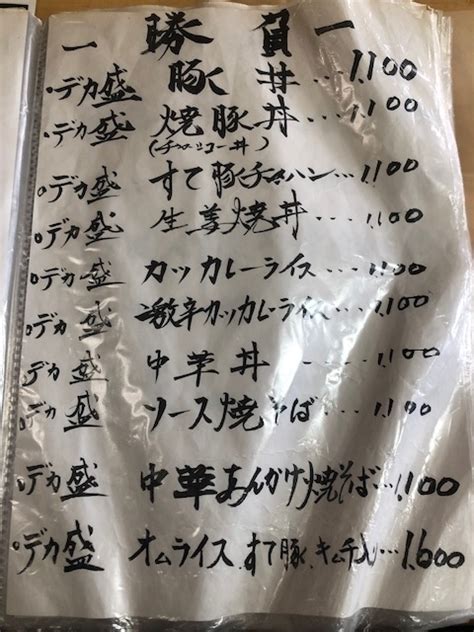 一 勝負 一
デカ盛 豚丼…1,100
デカ盛 焼豚丼…1,100
(チャーシュー丼)
デカ盛 すて豚チャーハン…1,100
デカ盛 生姜焼丼…1,100
デカ盛 カツカレーライス…1,100
デカ盛 激辛カツカレーライス…1,100
デカ盛 中華丼…1,100
デカ盛 ソース焼そば…1,100
デカ盛 中華あんかけ焼そば…1,100
デカ盛 オムライス、すて豚、キムチ入…1,600